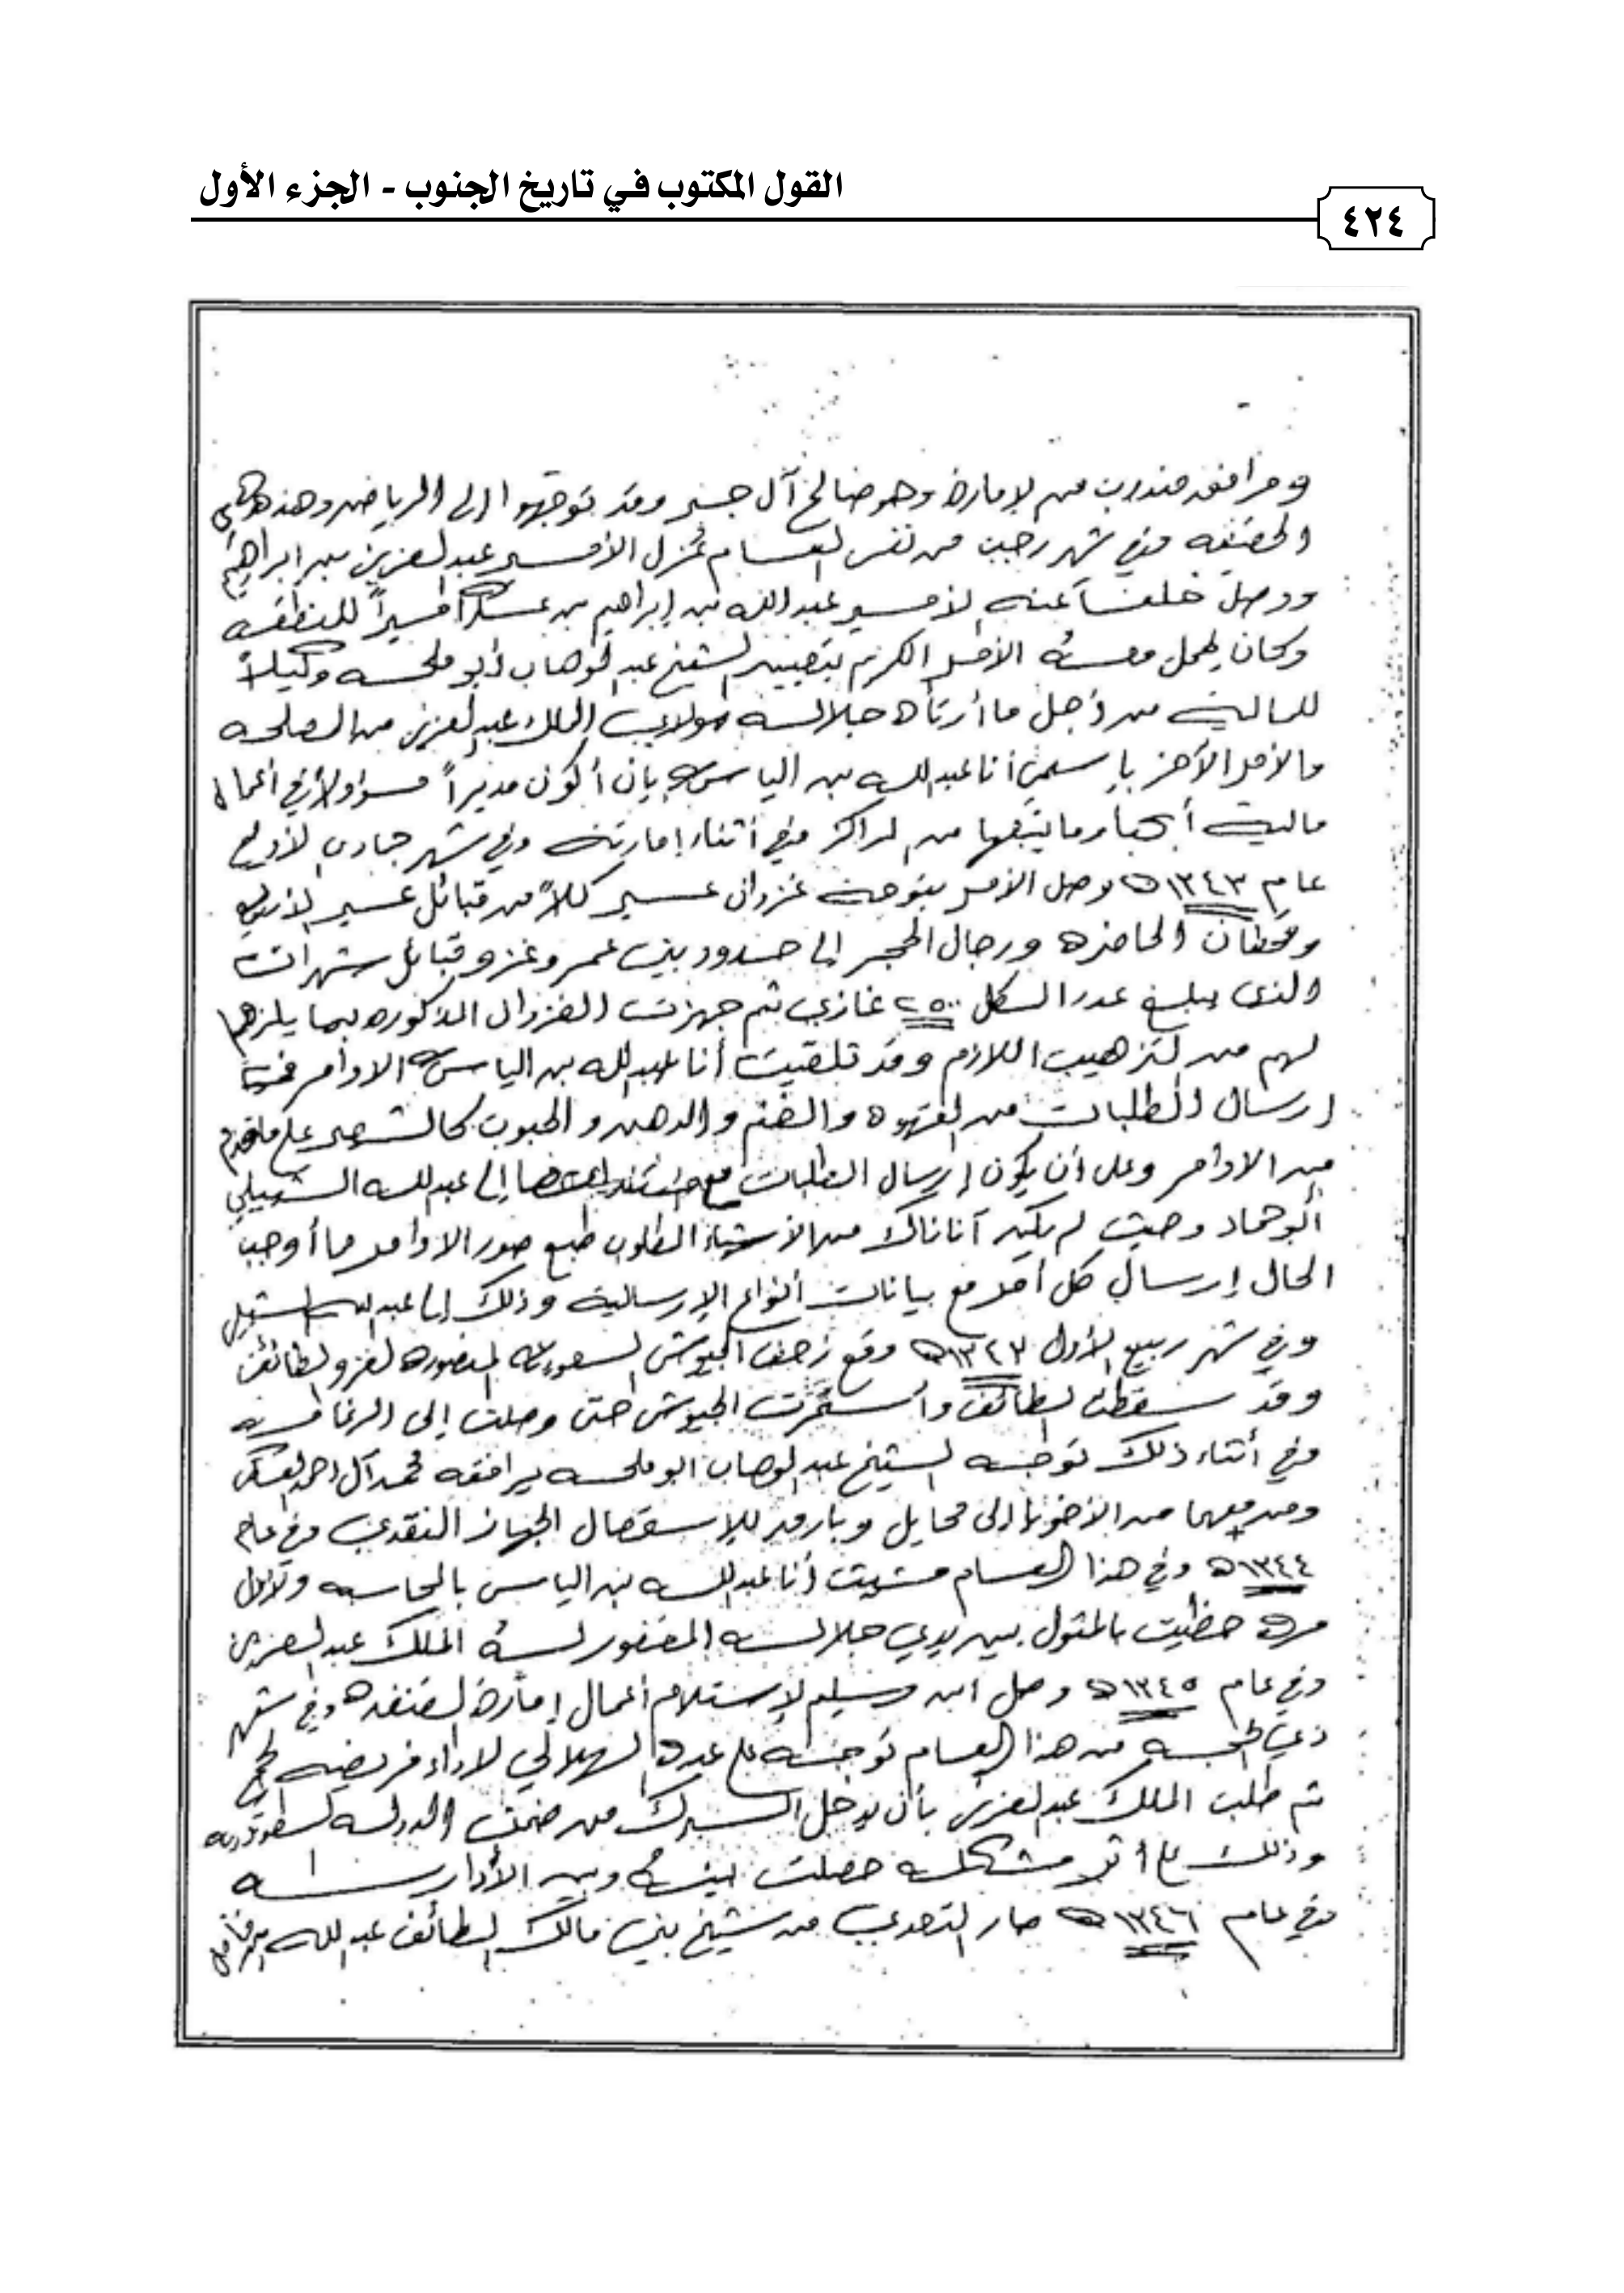 القول المكتوب في تاريخ الجنوب - الجزء الأول
٤٢٤
ومرافقه مندوب من الإمارة وهو صالح آل جبر وقد توجهوا إلى الرياض وهذه هي
الحقيقه وفي شهر رجب من نفس العام عُزل الأمير عبدالعزيز بن ابراهيم
ووصل خلفاً عنه الأمير عبدالله بن إبراهيم بن عسكر أميراً للمنطقه
وكان يحمل معه الأمر الكريم بتعيين الشيخ عبدالوهاب أبو ملحه وكيلاً
للماليه من أجل ما أرتأه جلالة مولاي الملك عبدالعزيز من المصلحه
والأمر الأخر بإسمي أنا عبدالله بن الياس بان أكون مديراً مسؤولاً في أعمال
مالية أبها وما يتبعها من المراكز في أثناء إمارته وفي شهر جمادى الأولى
عام ١٣٤٣ه وصل الأمر بتوجه غزوان عسير كلاً من قبائل عسير الأربع
وقحطان الحاضره ورجال الحجر إلى حدود بني عمرو وغزو قبائل شهران
والذي يبلغ عدد الكل ٢٥٠٠ غازي ثم جهزت الغزوان المذكوره بما يلزم
لهم من التزهيب اللازم وقد تلقيت أنا عبدالله بن الياس الاوامر
إرسال الطلبات من القهوه والغنم والدهن والحبوب كالشعير على ما تقدم
من الاوامر وعلى أن يكون إرسال الطلبات مع إلى عبدالله الشبيلي
أبو حماد وحيث لم يكن آناناك من الأشياء المطلوب طبع صور الاوامر مما أوجب
الحال إرسال كل أمر مع بيانات أنواع الإرسالية وذلك إلى عبدالله الشبيلي
وفي شهر ربيع الأول ١٣٤٣ه وقع زحف الجيوش السعوديه المنصوره لغزو الطائف
وقد سقطت الطائف وأستمرت الجيوش حتى وصلت إلى الرغامه
وفي أثناء ذلك توجه الشيخ عبدالوهاب ابو ملحه يرافقه محمد آل احمد العسكر
ومن معهما من الأخويا إلى محايل وبارق للإستحصال الجهاز النقدي وفي عام
١٣٤٤ه وفي هذا العام مشيت أنا عبدالله بن الياس بالمحاسبه ولأول
مره حظيت بالمثول بين يدي جلالة المغفور له الملك عبدالعزيز
وفي عام ١٣٤٥ه وصل ابن سليم لإستلام أعمال إمارة القنفذه وفي شهر
ذي الحجه من هذا العام توجه علي عبده الهلالي لاداء فريضة الحج
ثم طلب الملك عبدالعزيز بأن يدخل البرك من ضمن الدولة السعوديه
وذلك على أثر مشكله حصلت بينه وبين الأدارسه
وفي عام ١٣٤٦ه صار التعدي من شيخ بني مالك الطائف عبدالله بن فاضل